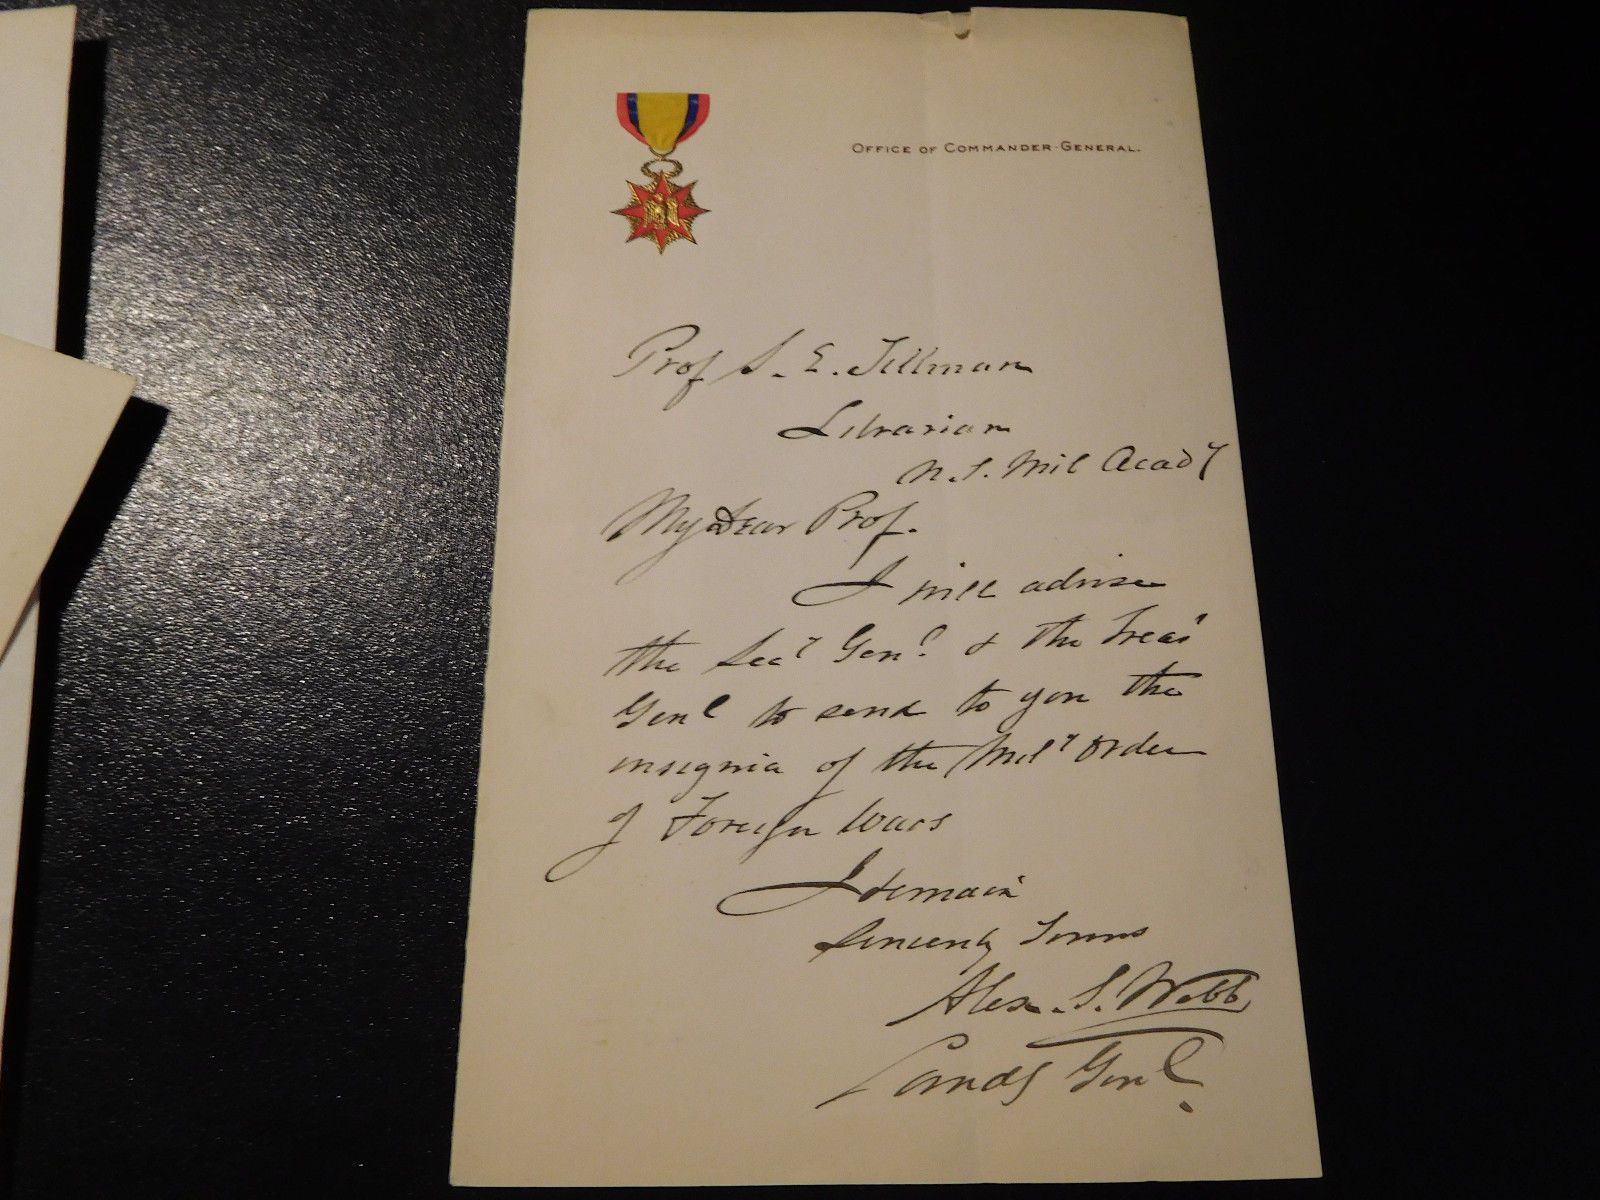 OFFICE OF COMMANDER-GENERAL.
Prof S. E. Tillman
Librarian
U.S. Mil Acady
My Dear Prof.
I will advise
the Secy Genl & the Treas
Genl to send to you the
insignia of the Mily Order
of Foreign Wars
I remain
Sincerely Yours
Alex. S. Webb
Comdg Genl.